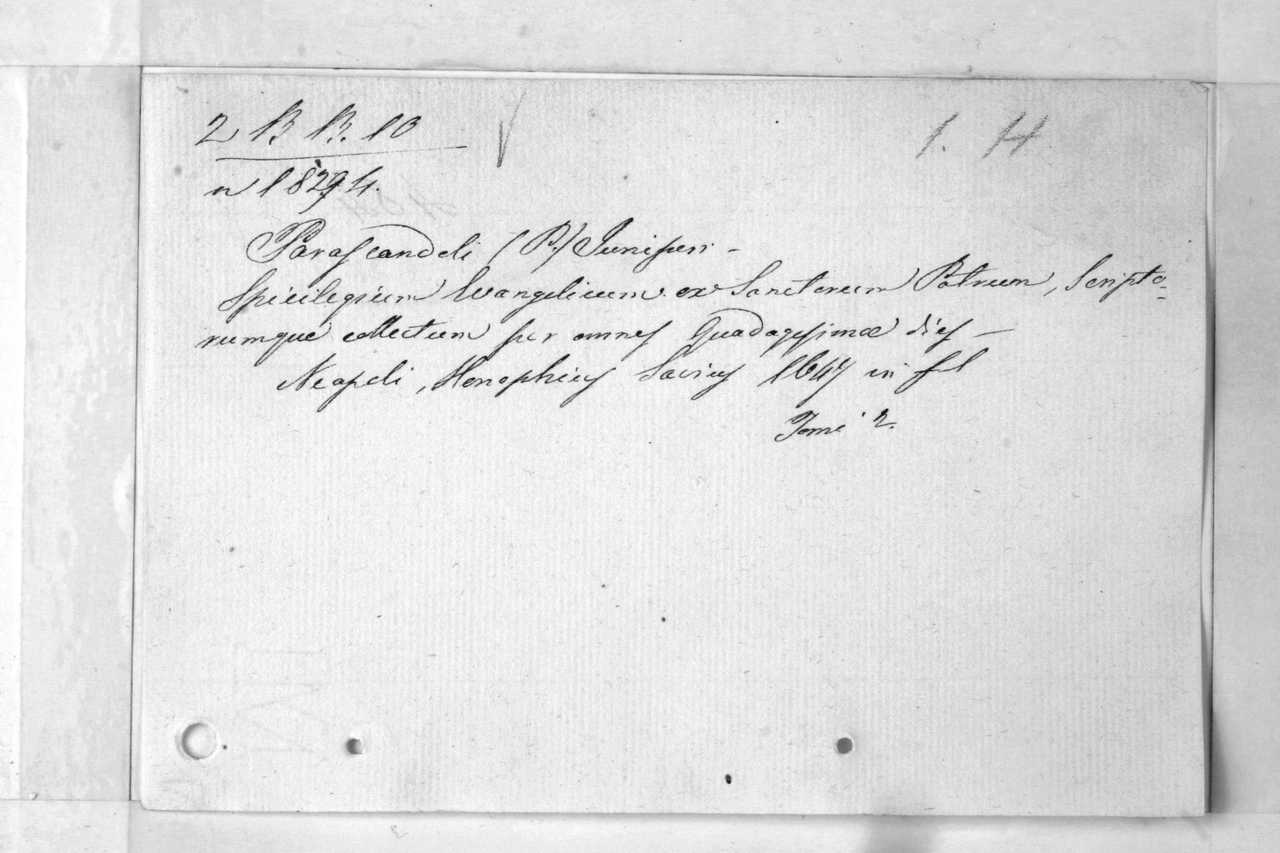 2 B B. 10
1. H
n 18294.
Parascandoli (P.) Juniperi -
Spicilegium Evangelicum ex Sanctorum Patrum, Scripto=
rumque collectum per omnes Quadagesimæ dies —
Neapoli, Honophrius Savius 1647 in fol
Tomi 2.